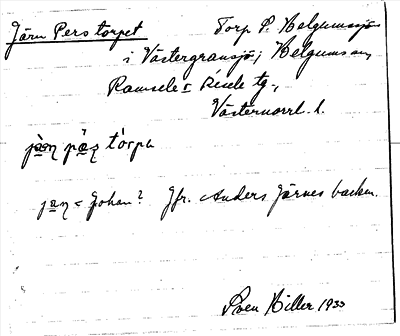 Järn Pers torpet Torp P. Helgumssjö
i Västergransjö; Helgums sn,
Ramsele o. Resele tg.,
Västernorrl. l.
tòrpa
= Johan? Jfr. Anders Järnes backen.
Sven Hiller 1933